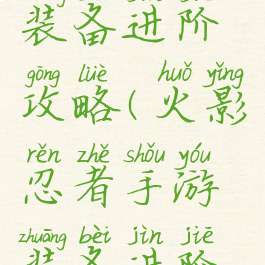 装备进阶
gōng lüè huǒ yǐng
攻略(火影
rěn zhě shǒu yóu
忍者手游
zhuāng bèi jìn jiē
装备进阶